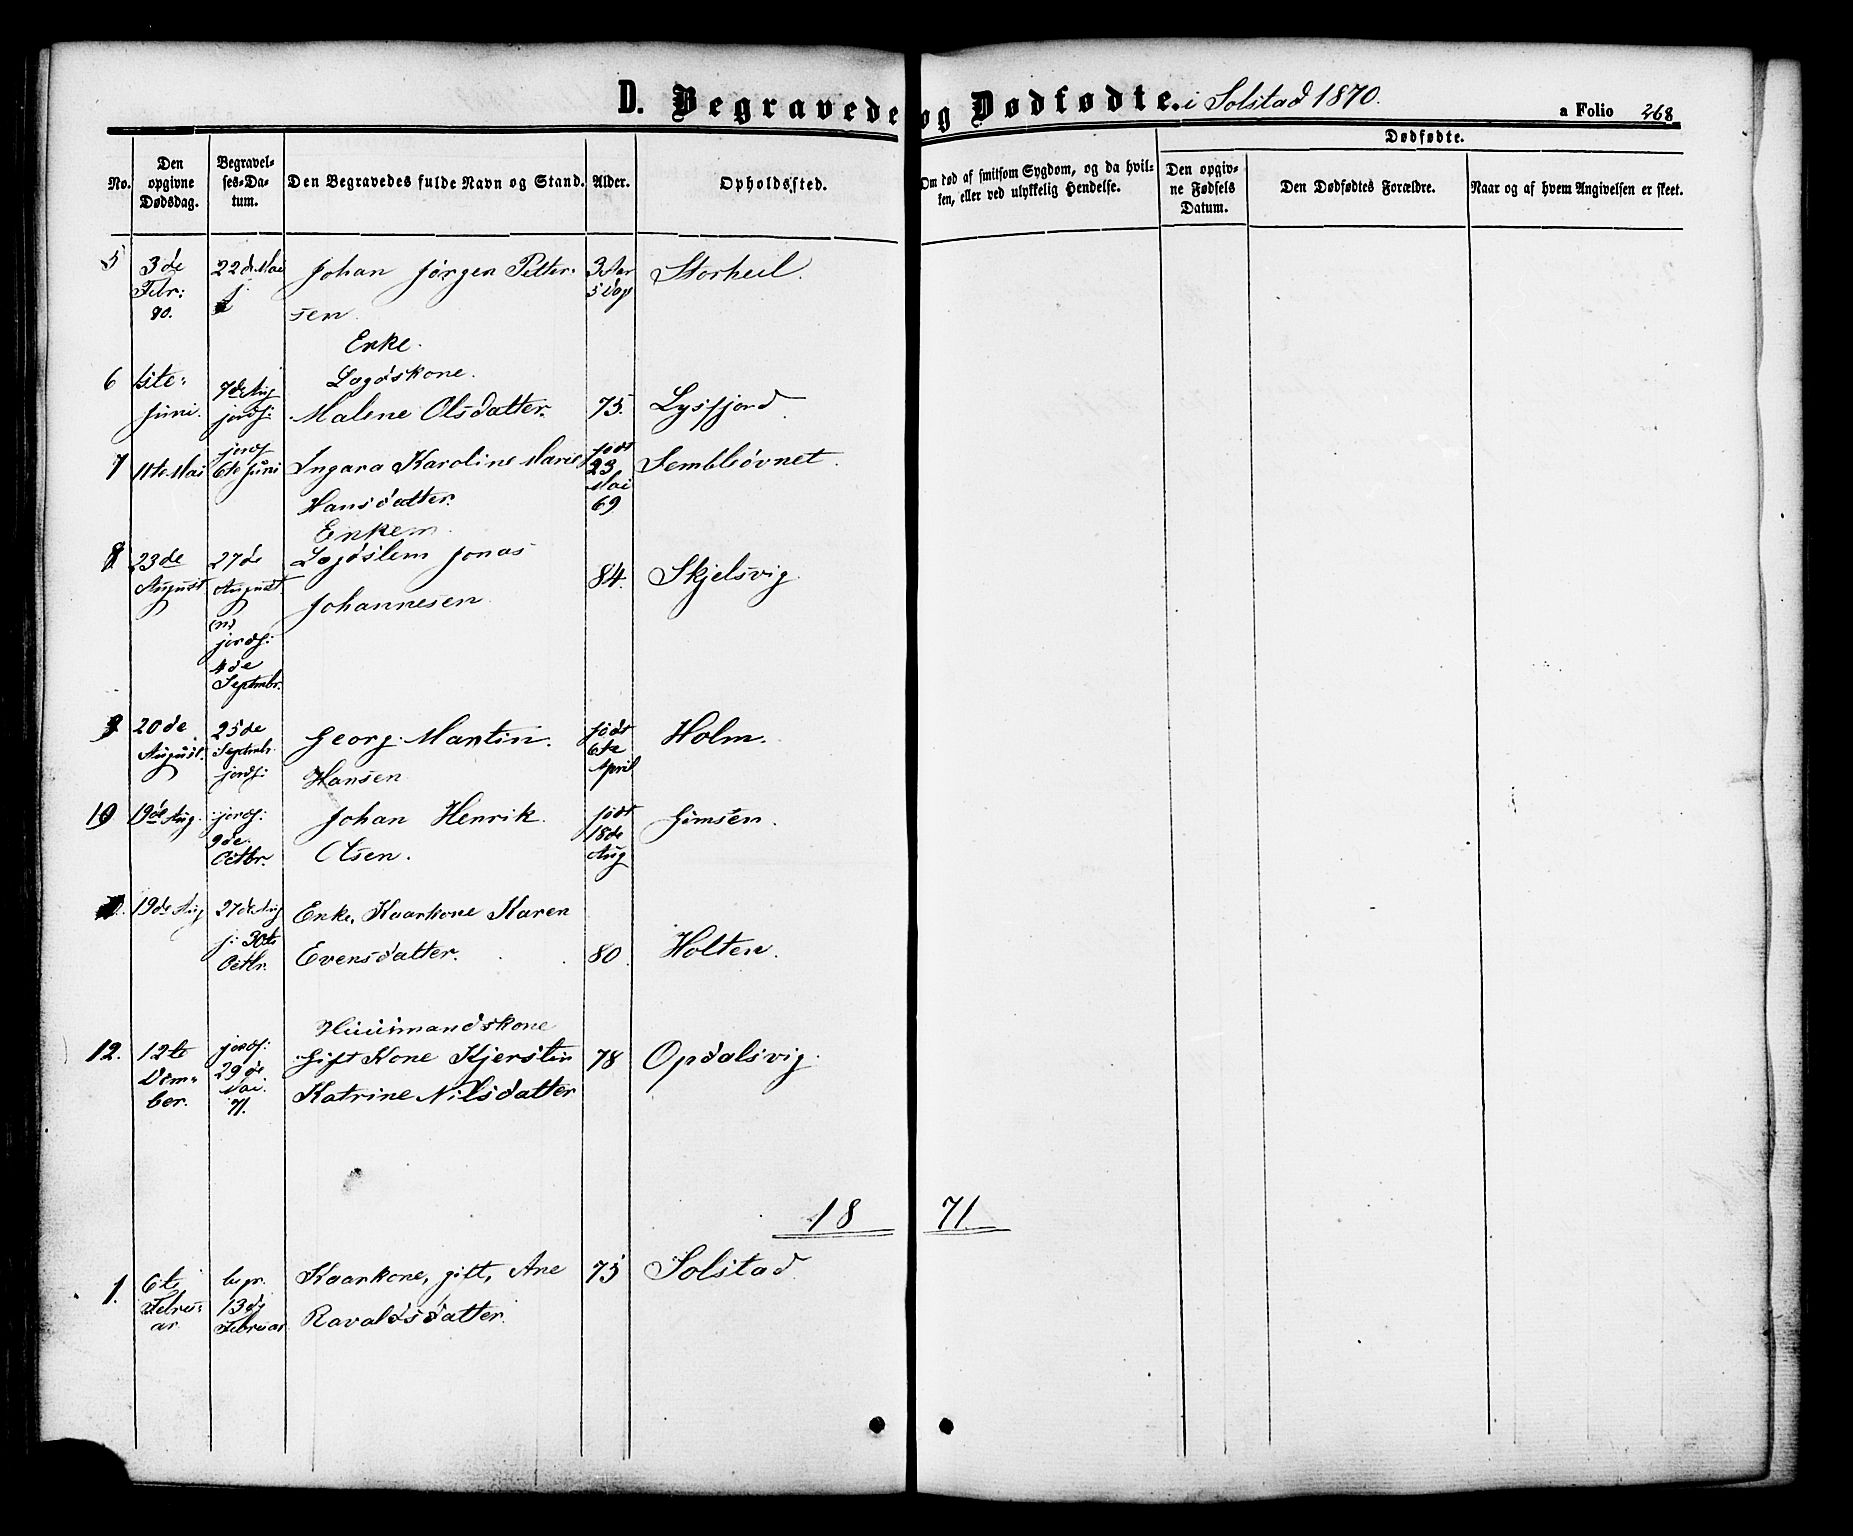 D. Begravede og Dødfødte. i Solstad 1870.
a Folio 268
No.
Den opgivne Dødsdag.
Begravelses-Datum.
Den Begravedes fulde Navn og Stand.
Alder.
Opholdssted.
Om død af smitsom Sygdom, og da hvilken, eller ved ulykkelig Hendelse.
Dødfødte.
Den opgivne Fødsels Datum.
Den Dødfødtes Forældre.
Naar og af hvem Angivelsen er skeet.
5 3de 22de Mai Johan Jørgen Petter- 3 Aar Storheil.
Febr: j. sen. 5 Dage
70.
Enke.
6 site: 7de Aug Lagdskone.
Juni. jordf: Malene Olsdatter. 75. Lysfjord.
7 11te Mai jordf 6te Juni Ingara Karoline Marie født 23 Sembleøvnet.
Hansdatter. Mai 69
Enkem.
8 23de 27de Lagdslem Jonas
August August. Johannesen 84. Skjelsvig.
(n)
jordf:
4de
Septmbr.
9 20de 25de Georg Martin. født Holm.
August. Septmbr. Hansen 6te
jordf: April
10 19de Aug. jordf: Johan Henrik født Simsen.
9de Olsen. 18de
Octbr. Aug
19de Aug 27de Aug Enke, Kaarkone Karen
j: 30te Evensdatter. 80. Holten.
Octbr.
Huusmandskone
12. 12te jordf: Gift Kone Kjerstin 78 Opdalsvig.
Decem- 29de Katrine Nilsdatter
ber. Mai
71.
18 71
1. 6te begr. Kaarkone, gift, Ane 75 Solstad.
Febru- 13de Ravaldsdatter.
ar. Februar